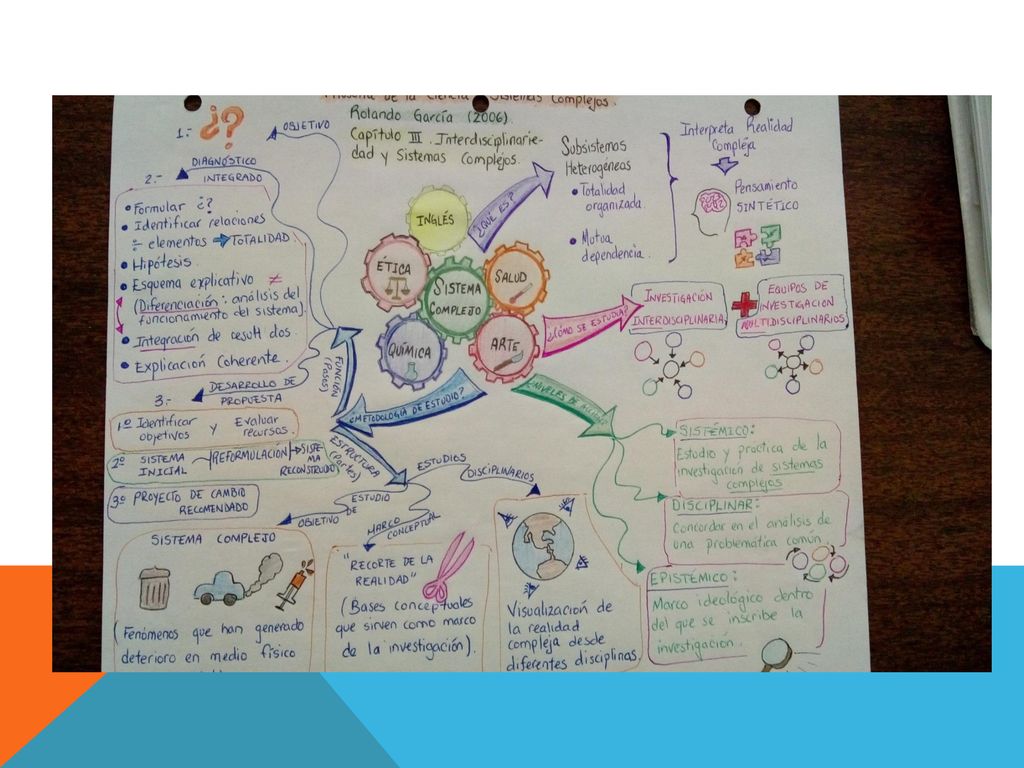 Filosofía de la Ciencia Sistemas Complejos.
Rolando García (2006)
Capítulo III. Interdisciplinarie-
dad y Sistemas Complejos.
INGLÉS
ÉTICA
SISTEMA
COMPLEJO
SALUD
QUÍMICA
ARTE
¿QUÉ ES?
Subsistemas
Heterogéneas
• Totalidad
organizada.
• Mutua
dependencia.
Interpreta Realidad
Compleja
Pensamiento
SINTÉTICO
¿CÓMO SE ESTUDIA?
INVESTIGACIÓN
INTERDISCIPLINARIA
EQUIPOS DE
INVESTIGACIÓN
MULTIDISCIPLINARIOS
¿NIVELES DE
SISTÉMICO:
Estudio y práctica de la
investigación de sistemas
complejos
DISCIPLINAR:
Concordar en el análisis de
una problemática común.
EPISTÉMICO:
Marco ideológico dentro
del que se inscribe la
investigación.
¿METODOLOGIA DE ESTUDIO?
FUNCIÓN
(Pasos)
1.- ¿?
OBJETIVO
DIAGNÓSTICO
2.- INTEGRADO
• Formular ¿?
• Identificar relaciones
÷ elementos ➡ TOTALIDAD.
• Hipótesis.
• Esquema explicativo ≠
(Diferenciación: análisis del
funcionamiento del sistema).
• Integración de dos.
• Explicación Coherente.
DESARROLLO DE
3.- PROPUESTA
1º Identificar y Evaluar
objetivos recursos.
2º SISTEMA INICIAL
REFORMULACIÓN
SISTEMA
RECONSTRUIDO
3º PROYECTO DE CAMBIO
RECOMENDADO
ESTRUCTURA
(Partes)
ESTUDIOS
DISCIPLINARIOS
OBJETIVO DE ESTUDIO
MARCO
CONCEPTUAL
SISTEMA COMPLEJO
(Fenómenos que han generado
deterioro en medio físico
"RECORTE DE LA
REALIDAD"
(Bases conceptuales
que sirven como marco
de la investigación).
Visualización de
la realidad
compleja desde
diferentes disciplinas.